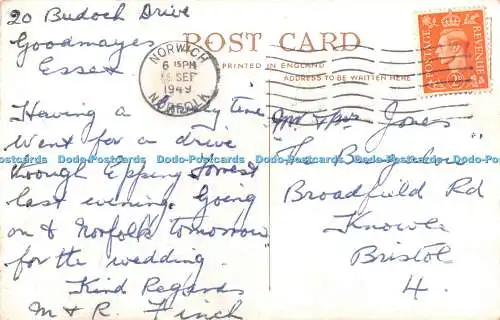 20 Budoch Drive
Goodmayes
Essex
NORWICH
6 15 PM
SEP
1949
NORFOLK
POST CARD
PRINTED IN ENGLAND
ADDRESS TO BE WRITTEN HERE
POSTAGE
REVENUE
Having a time
Went for a drive
through Epping Forrest
last evening. Going
on to Norfolk tomorrow
for the wedding.
Kind Regards
M & R. Finch
Mr & Mrs Jones
"The
Broadfield Rd
Knowle
Bristol
4.
Dodo-Postcards Dodo-Postcards Dodo-Postcards Dodo-Postcards Dodo-Postcards